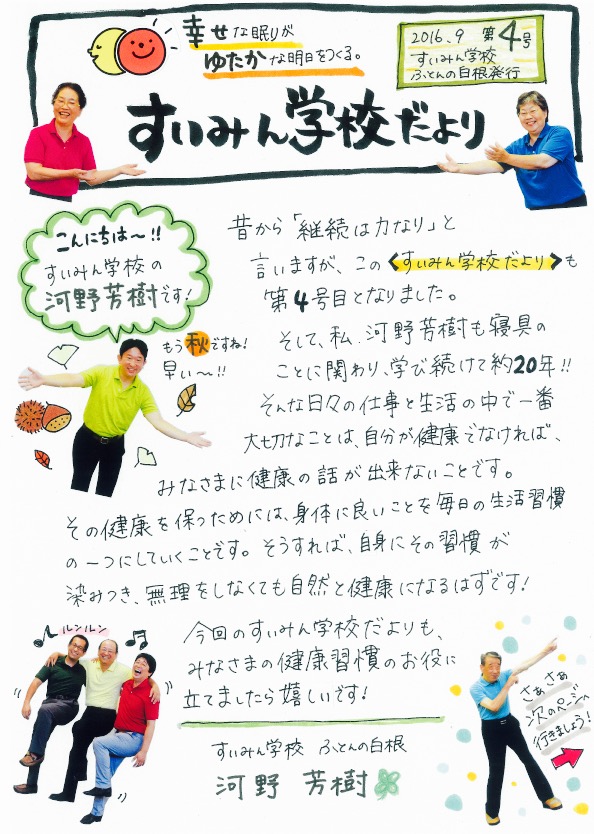 幸せな眠りが
ゆたかな明日をつくる。
2016.9 第4号
すいみん学校
ふとんの白根発行
すいみん学校だより
こんにちは〜!!
すいみん学校の
河野芳樹です!
もう秋ですね!
早い〜!!
昔から「継続は力なり」と
言いますが、この《すいみん学校だより》も
第4号目となりました。
そして、私、河野芳樹も寝具の
ことに関わり、学び続けて約20年!!
そんな日々の仕事と生活の中で一番
大切なことは、自分が健康でなければ、
みなさまに健康の話が出来ないことです。
その健康を保つためには、身体に良いことを毎日の生活習慣
の一つにしていくことです。そうすれば、自身にその習慣が
染みつき、無理をしなくても自然と健康になるはずです!
ルンルン
今回のすいみん学校だよりも、
みなさまの健康習慣のお役に
立てましたら嬉しいです!
すいみん学校 ふとんの白根
河野 芳樹
さぁさぁ
次のページへ
行きましょう!